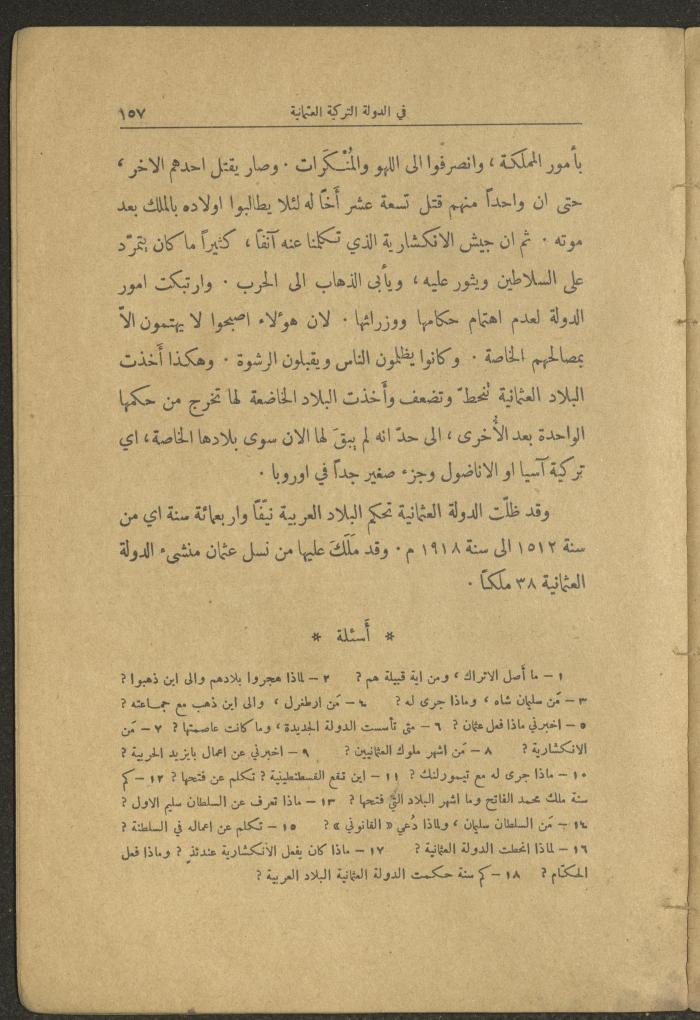 في الدولة التركية العثمانية ١٥٧
بأمور المملكة ، وانصرفوا الى اللهو والمُنْكَرات . وصار يقتل احدهم الاخر ،
حتى ان واحداً منهم قتل تسعة عشر أَخاً له لئلا يطالبوا اولاده بالملك بعد
موته . ثم ان جيش الانكشارية الذي تكلمنا عنه آنفاً ، كثيراً ما كان يتمرّد
على السلاطين ويثور عليه ، ويأبى الذهاب الى الحرب . وارتبكت امور
الدولة لعدم اهتمام حكامها ووزرائها . لان هوُلاء اصبحوا لا يهتمون الاّ
بمصالحهم الخاصة . وكانوا يظلمون الناس ويقبلون الرشوة . وهكذا أَخذت
البلاد العثمانية تنحطّ وتضعف وأَخذت البلاد الخاضعة لها تخرج من حكمها
الواحدة بعد الأُخرى ، الى حدّ انه لم يبقَ لها الان سوى بلادها الخاصة ، اي
تركية آسيا او الاناضول وجزء صغير جداً في اوروبا .
وقد ظلّت الدولة العثمانية تحكم البلاد العربية نيّفاً واربعمائة سنة اي من
سنة ١٥١٢ الى سنة ١٩١٨ م . وقد مَلَكَ عليها من نسل عثمان منشىء الدولة
العثمانية ٣٨ ملكاً .
* أَسئلة *
١ – ما أصل الاتراك ، ومن اية قبيلة هم ؟ ٢ – لماذا هجروا بلادهم والى اين ذهبوا ؟
٣ – مَن سليمان شاه ، وماذا جرى له ؟ ٤ – مَن ارطغرل ، والى اين ذهب مع جماعته ؟
٥ – اخبرني ماذا فعل عثمان ؟ ٦ – متى تأسست الدولة الجديدة ، وما كانت عاصمتها ؟ ٧ – مَن
الانكشارية ؟ ٨ – مَن اشهر ملوك العثمانيين ؟ ٩ – اخبرني عن اعمال بايزيد الحربية ؟
١٠ – ماذا جرى له مع تيمورلنك ؟ ١١ – اين تقع القسطنطينية ؟ تكلم عن فتحها ؟ ١٢ – كم
سنة ملك محمد الفاتح وما اشهر البلاد التي فتحها ؟ ١٣ – ماذا تعرف عن السلطان سليم الاول ؟
١٤ – مَن السلطان سليمان ، ولماذا دُعي « القانوني » ؟ ١٥ – تكلم عن اعماله في السلطنة ؟
١٦ – لماذا انحطت الدولة العثمانية ؟ ١٧ – ماذا كان يفعل الانكشارية عندئذٍ ؟ وماذا فعل
الحكّام ؟ ١٨ – كم سنة حكمت الدولة العثمانية البلاد العربية ؟